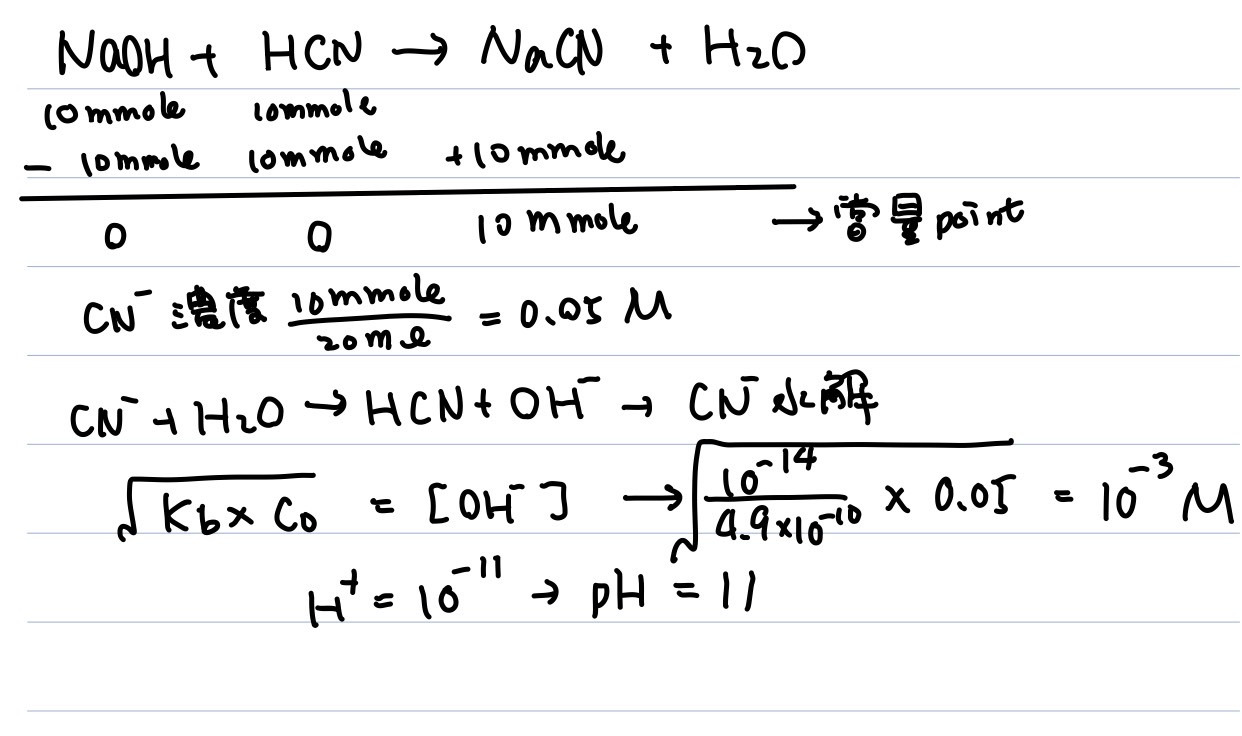 NaOH + HCN → NaCN + H₂O
10mmole 10mmole
- 10mmole 10mmole +10mmole
0 0 10mmole → 當量point
CN⁻ 濃度 10mmole/20ml = 0.05 M
CN⁻ + H₂O → HCN + OH⁻ → CN⁻ 水解
√(Kb × C₀) = [OH⁻] → √(10⁻¹⁴/4.9×10⁻¹⁰ × 0.05) = 10⁻³ M
H⁺ = 10⁻¹¹ → pH = 11